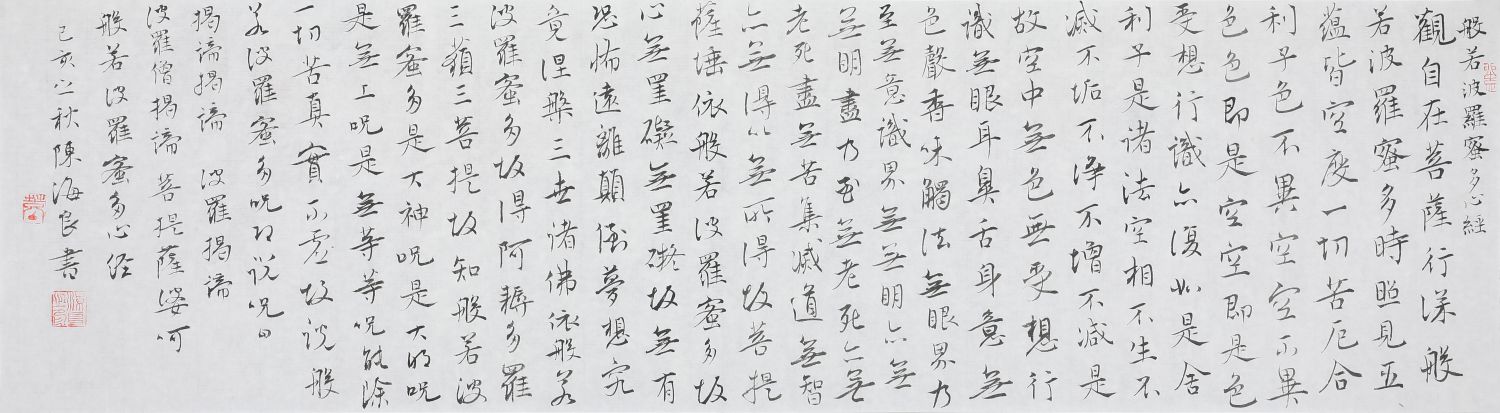 般若波羅蜜多心經
觀自在菩薩行深般
若波羅蜜多時照見五
蘊皆空度一切苦厄舍
利子色不異空空不異
色色即是空空即是色
受想行識亦復如是舍
利子是諸法空相不生不
滅不垢不淨不增不減是
故空中無色無受想行
識無眼耳鼻舌身意無
色聲香味觸法無眼界乃
至無意識界無無明亦無
無明盡乃至無老死亦無
老死盡無苦集滅道無智
亦無得以無所得故菩提
薩埵依般若波羅蜜多故
心無罣礙無罣礙故無有
恐怖遠離顛倒夢想究
竟涅槃三世諸佛依般若
波羅蜜多故得阿耨多羅
三藐三菩提故知般若波
羅蜜多是大神呪是大明呪
是無上呪是無等等呪能除
一切苦真實不虛故說般
若波羅蜜多呪即說呪曰
揭諦揭諦 波羅揭諦
波羅僧揭諦 菩提薩婆呵
般若波羅蜜多心經
己亥之秋陳海良書